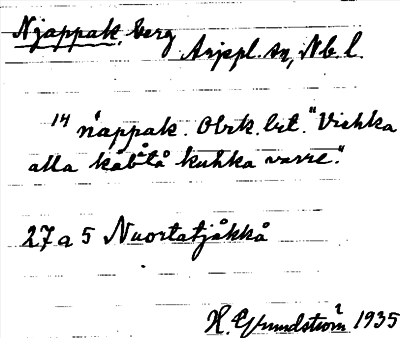 Njappak, berg
Arjepl. sn, Nb. l.
14 ńappak. Obek. bet. "Vichka
alla kåbtå kuhka varre."
27 a 5 Nuortatjåkkå
H. Grundström 1935